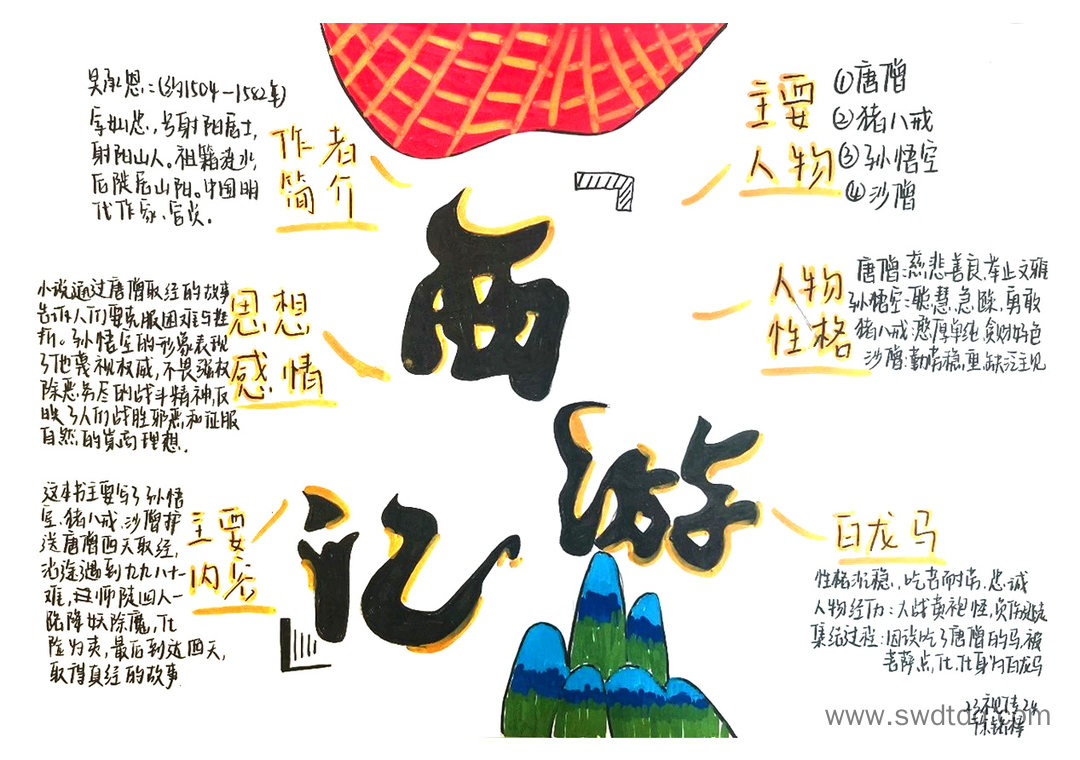 西游记
作者
简介
吴承恩：(约1504—1582年)
字汝忠，号射阳居士，
射阳山人。祖籍涟水，
后徙居山阳。中国明
代作家、官员。
思想
感情
小说通过唐僧取经的故事
告诉人们要克服困难与挫
折。孙悟空的形象表现
了他蔑视权威，不畏强权
除恶务尽的战斗精神，反
映了人们战胜邪恶和征服
自然的崇高理想。
主要
内容
这本书主要写了孙悟
空、猪八戒、沙僧护
送唐僧西天取经，
沿途遇到九九八十一
难，这师陡四人一
路降妖除魔，化
险为夷，最后到达西天，
取得真经的故事
主要
人物
①唐僧
②猪八戒
③孙悟空
④沙僧
人物
性格
唐僧：慈悲善良，举止文雅
孙悟空：聪慧，急躁，勇敢
猪八戒：憨厚单纯，贪财好色
沙僧：勤劳稳重，缺泛主见
白龙马
性格沉稳，吃苦耐劳，忠诚
人物经历：大战黄袍怪，负伤
集结过程：因误吃了唐僧的马被
菩萨点化，化身为白龙马
23视传24
www.swdtdr.com